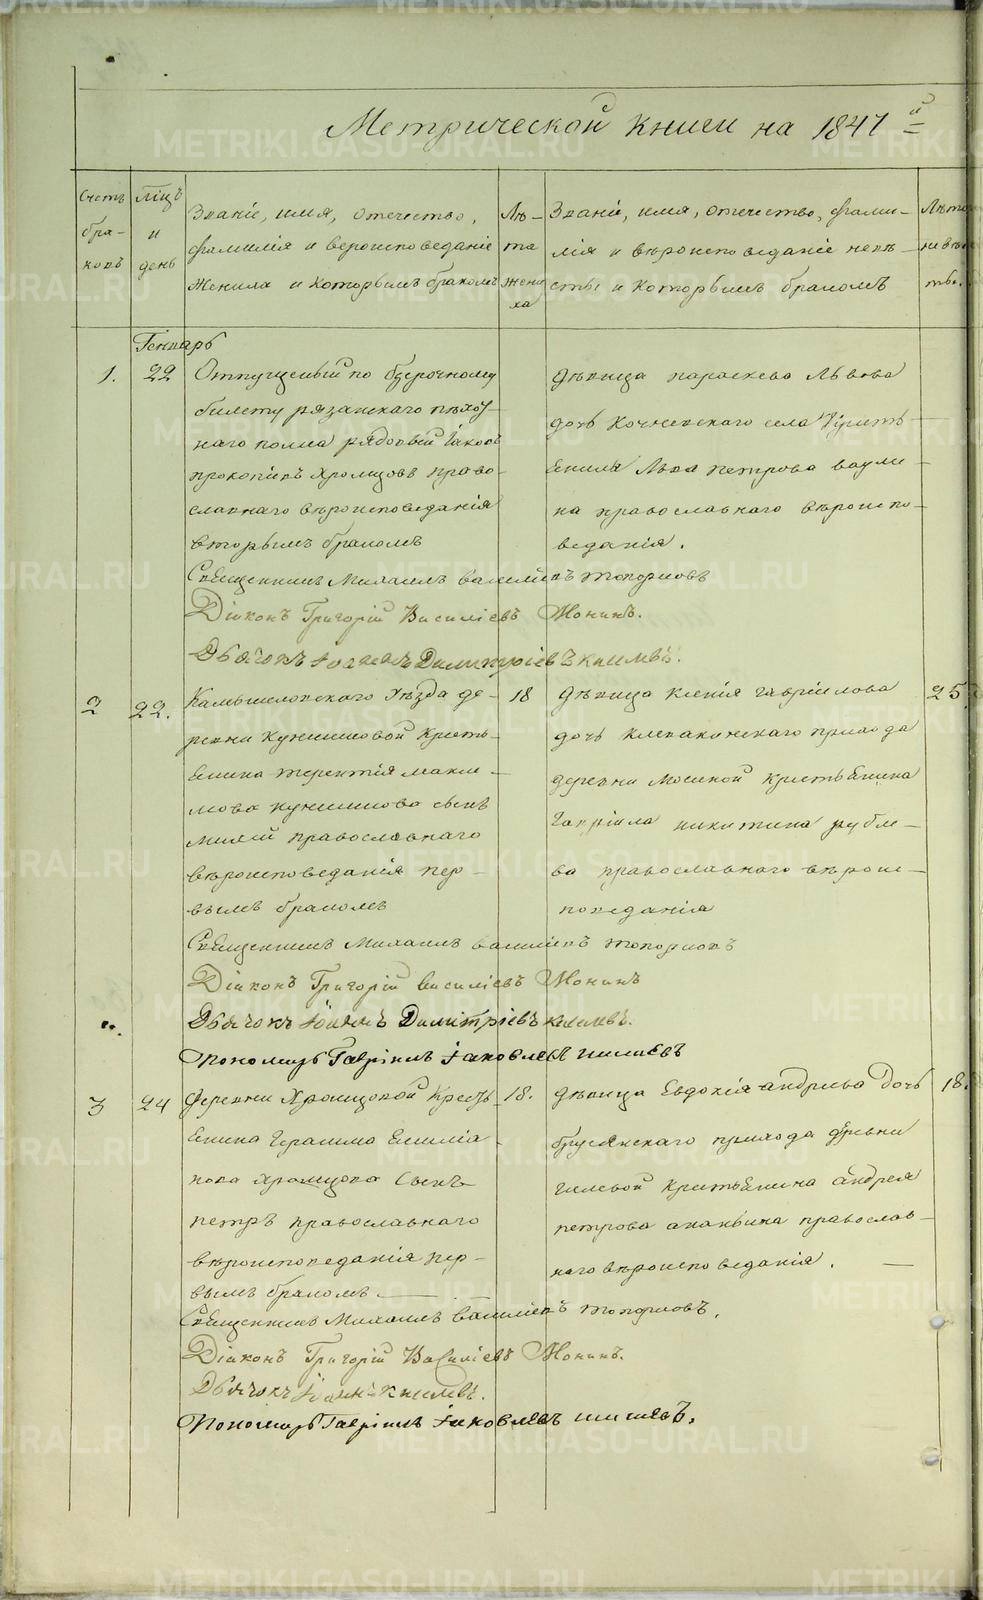 Метрической книги на 1847й
Счетъ браковъ
Мѣцъ и день
Званіе, имя, отечество,
фамилія и вероисповеданіе
жениха и которымъ бракомъ
Лѣта жениха
Званіе, имя, отечество, фами-
лія и вѣроисповеданіе невѣ-
сты и которымъ бракомъ
Генварь
1. 22
Отпущеный по безсрочному
билету рязанскаго пѣхот-
наго полка рядовый Іаковъ
прокопіевъ Хромцовъ право-
славнаго вѣроисповеданія
вторымъ бракомъ
дѣвица параскева Львова
дочь Кочневскаго села Крестъ-
янина Льва петрова ваули-
на православнаго вѣроиспо-
веданія.
Священникъ Михаилъ василіевъ топорковъ
Діаконъ Григорій Василіевъ Монинъ.
Дьячокъ Іоаннъ Димитріевъ
2 22.
Камышловскаго уѣзда де-
ревни Кукишовой Кресть-
янина терентія макси-
мова
православнаго
вѣроисповеданія пер-
вымъ бракомъ
18
дѣвица Ксенія гавріилова
дочь Клевакинскаго прихода
деревни Мосиной Крестьянина
Гавріила никитина рубле-
ва православнаго вѣроис-
поведанія
25
Священникъ Михаилъ василіевъ топорковъ
Діаконъ Григорій Василіевъ Монинъ
Дьячокъ Іоаннъ Димитріевъ
Пономарь Гавріилъ Іаковлевъ
3 24
Деревни Хромцовой Кресть-
янина Герасима Емиліа-
нова Хромцова Сынъ
петръ православнаго
вѣроисповеданія пер-
вымъ бракомъ
18.
дѣвица Евдокія андреева Дочь
брусянскаго прихода дрѣвни
гилевой Крестьянина андрея
петрова ананьина православ-
наго вѣроисповеданія.
18.
Священникъ Михаилъ Василіевъ топорковъ.
Діаконъ Григорій Василіевъ Монинъ.
Дьячокъ Іоаннъ
Пономарь Гавріилъ Іаковлевъ
METRIKI.GASO-URAL.RU